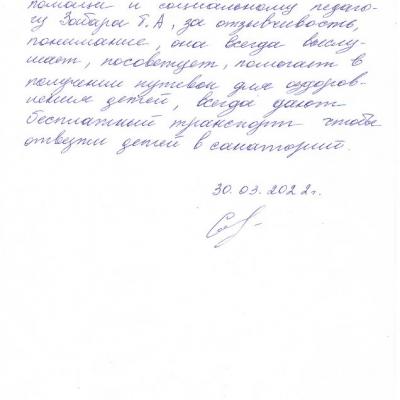 помощи и социальному педаго-
гу Забара Т.А, за отзывчивость,
понимание, она всегда выслу-
шает, посоветует, помогает в
получении путевок для оздоров-
ления детей, всегда дают
бесплатный транспорт чтобы
отвезти детей в санаторий.
30.03.2022г.